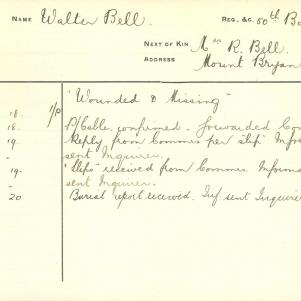 NAME Walter Bell. REG. &c. 50th Ba
NEXT OF KIN Mrs R. Bell.
ADDRESS Mount Bryan
"Wounded & Missing"
18. I/P
18. P/Cable, confirmed. Forwarded Co
19. Reply from Commns per slip. Informa
sent Inquirer.
19. "Slip" received from Commns. Informa
sent Inquirer.
20 Burial report received. Inf. sent Inquire